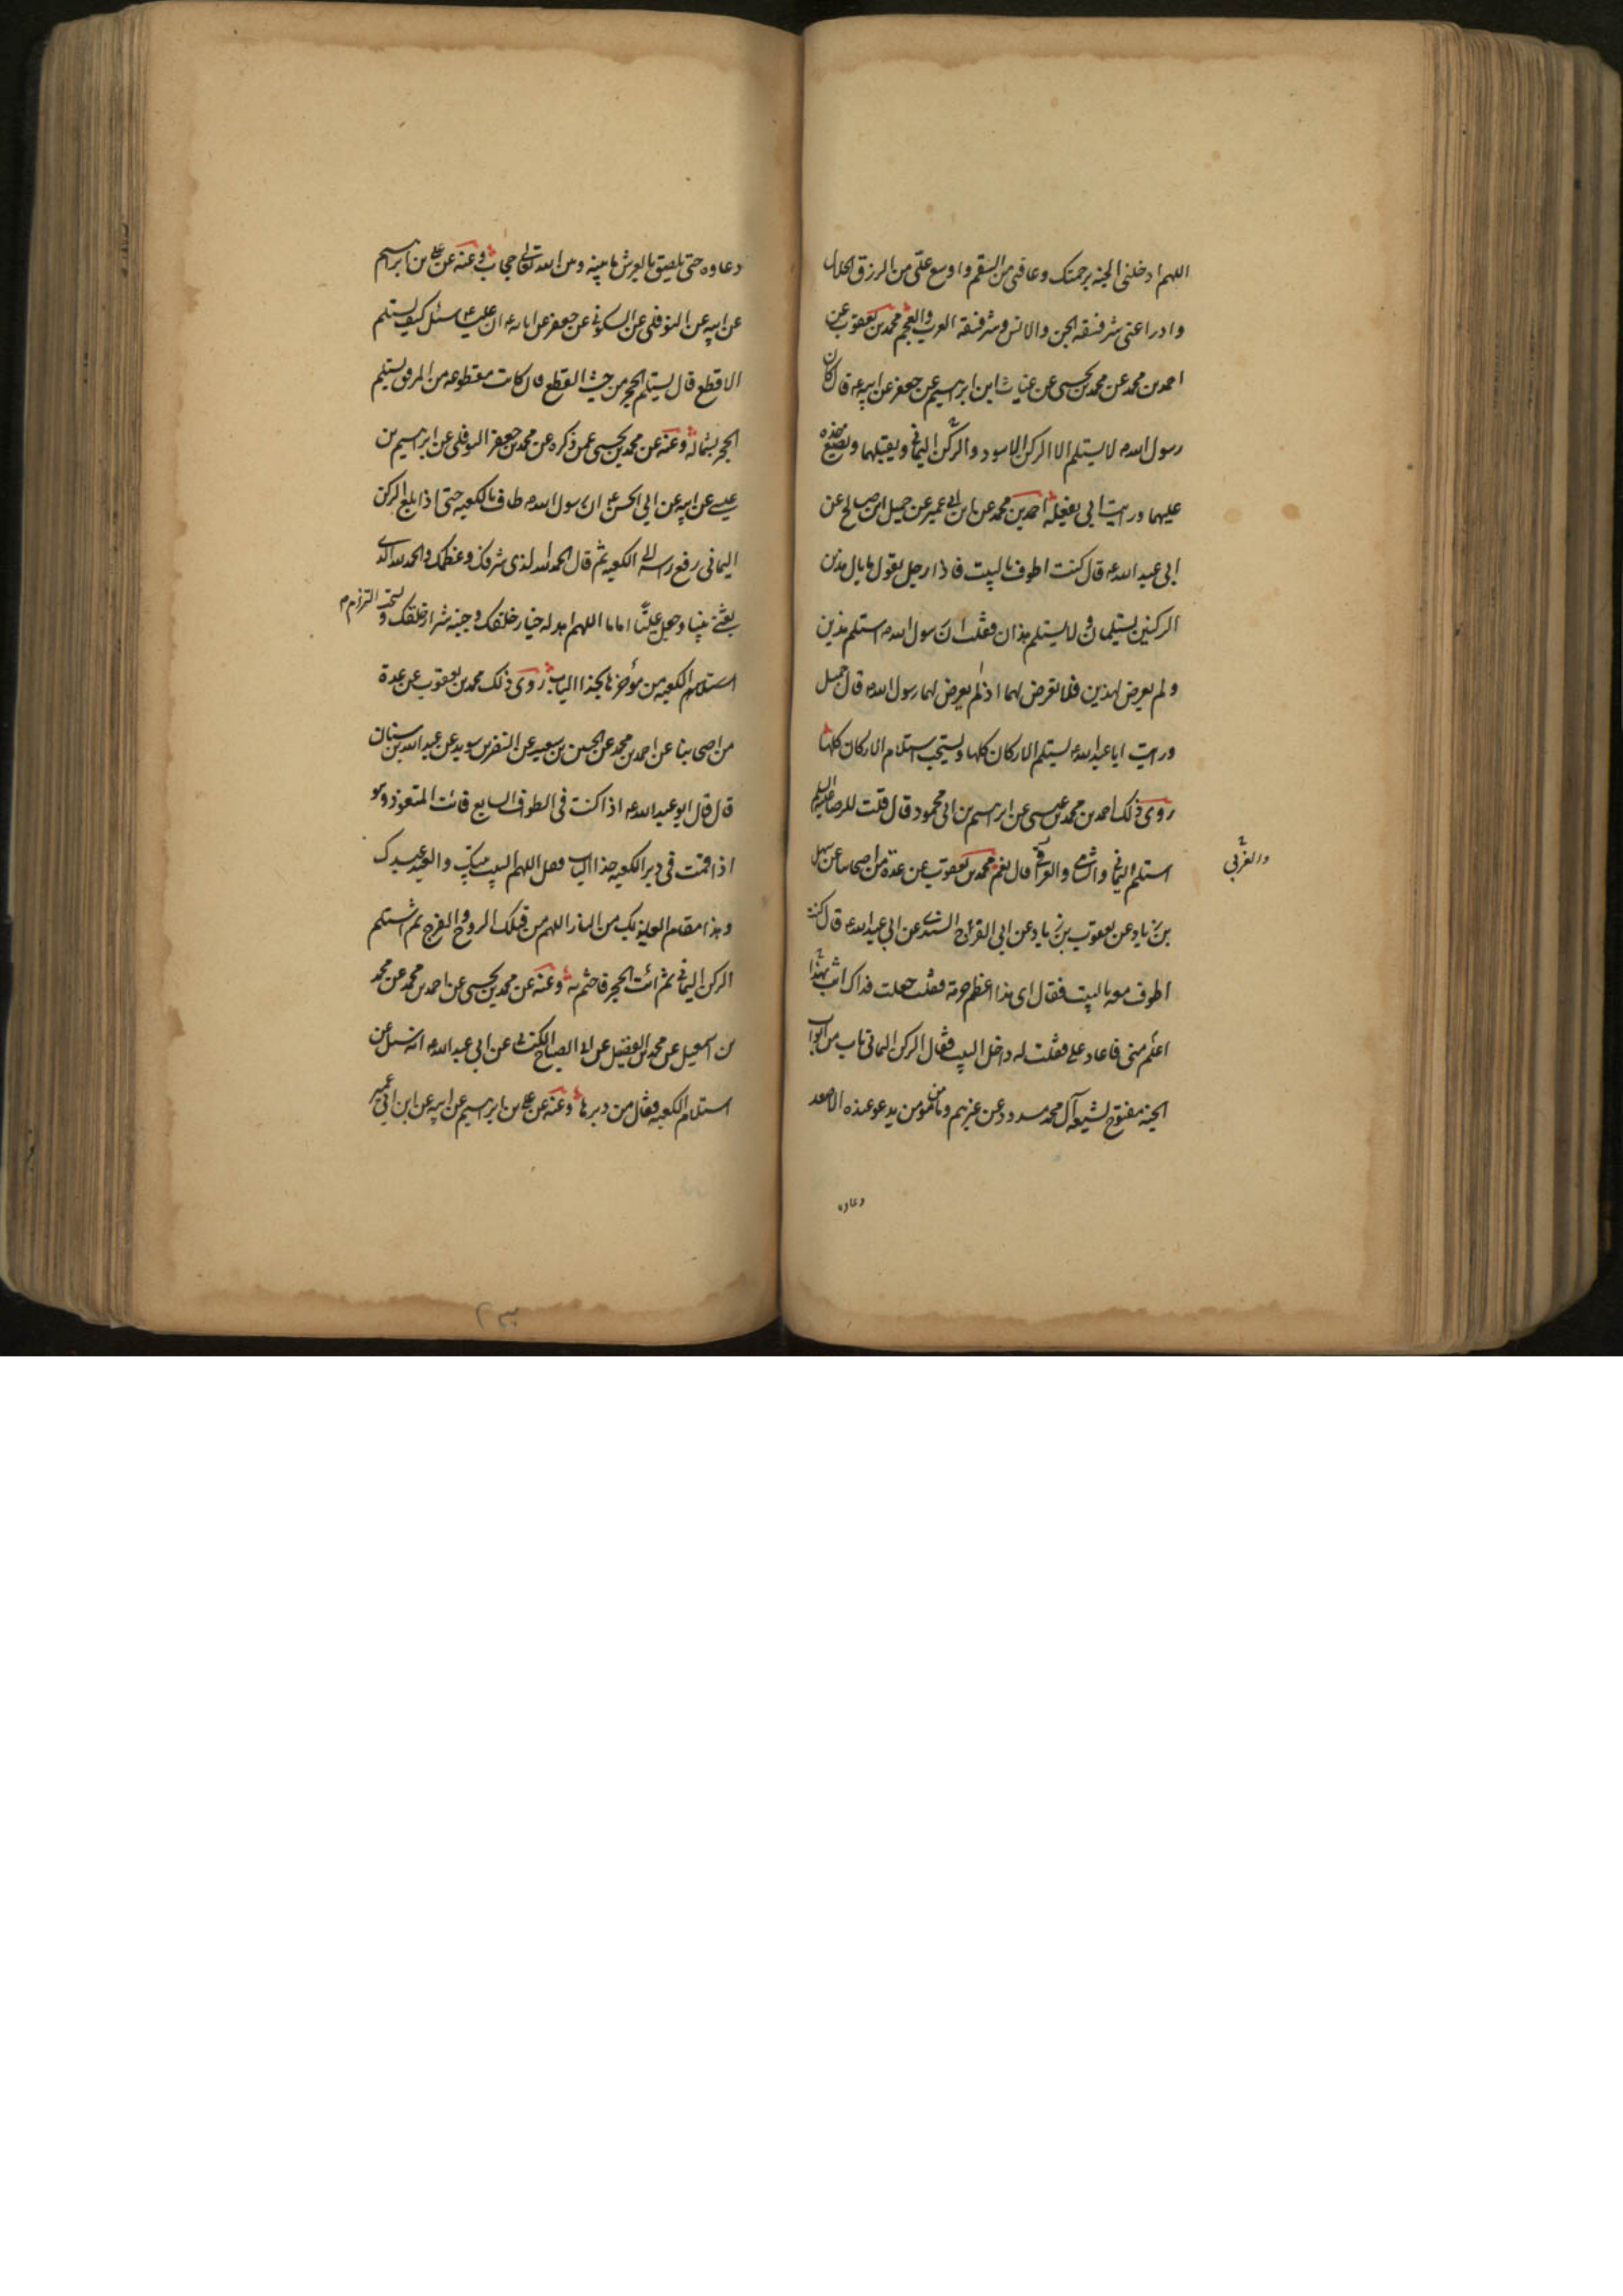 اللهم ادخلنی الجنه برحمتک وعافنی من السقم واوسع علی من الرزق الحلال
وادرا عنی شر فسقه الجن والانس وشر فسقه العرب والعجم محمد بن یعقوب عن
احمد بن محمد عن محمد بن یحیی عن غیاث ابن ابرهیم عن جعفر عن ابیه ع قال کان
رسول الله ص لا یستلم الا الرکن الاسود والرکن الیمانی ویقبلهما ویضع خده
علیهما ورایت ابی یفعله احمد بن محمد عن ابن ابی عمیر عن جمیل ابن صالح عن
ابی عبد الله ع قال کنت اطوف بالبیت فاذا رجل یقول ما بال هذین
الرکنین یستلمان ولا یستلم هذان فقلت ان رسول الله ص استلم هذین
ولم یعرض لهذین فلا تعرض لهما اذ لم یعرض لهما رسول الله ص قال جمیل
ورایت ابا عبد الله ع یستلم الارکان کلها ویستحب استلام الارکان کلها
روی ذلک احمد بن محمد بن عیسی عن ابرهیم بن ابی محمود قال قلت للرضا علیه السلم
استلم الیمانی والشامی والعراقی قال نعم محمد بن یعقوب عن عدة من اصحابنا عن سهل
والغربی
بن زیاد عن یعقوب بن زیاد عن ابی الفرج السندی عن ابی عبد الله ع قال کنت
اطوف معه بالبیت فقال ای هذا اعظم حرمة فقلت جعلت فداک انت بهذا
اعلم منی فاعاد علی فقلت له داخل البیت فقال الرکن الیمانی باب من ابواب
الجنه مفتوح لشیعه آل محمد مسدود عن غیرهم وما من مومن یدعو عنده الا صعد
دعاوه
دعاوه حتی یلصق بالعرش ما بینه وبین الله تعالی حجاب وعنه عن علی بن ابرهیم
عن ابیه عن النوفلی عن السکونی عن جعفر عن ابائه ع ان علیا ع سئل کیف یستلم
الاقطع قال یستلم الحجر من حیث القطع فان کانت مقطوعه من المرفق یستلم
الحجر بشماله وعنه عن محمد بن یحیی عمن ذکره عن محمد بن جعفر النوفلی عن ابرهیم بن
عیسی عن ابیه عن ابی الحسن ع ان رسول الله ص طاف بالکعبه حتی اذا بلغ الرکن
الیمانی رفع راسه الی الکعبه ثم قال الحمد لله الذی شرفک وعظمک والحمد لله الذی
بعثنی نبیا وجعل علیا اماما اللهم اهد له خیار خلقک وجنبه شرار خلقک و
استلام الکعبه من مؤخرها بحذا الباب روی ذلک محمد بن یعقوب عن عدة
من اصحابنا عن احمد بن محمد عن الحسین بن سعید عن النضر بن سوید عن عبد الله بن سنان
قال قال ابو عبد الله ع اذا کنت فی الطواف السابع فائت المتعوذ وهو
اذا قمت فی دبر الکعبه حذا الباب فقل اللهم البیت بیتک والعبد عبدک
وهذا مقام العایذ بک من النار اللهم من قبلک الروح والفرج ثم استلم
الرکن الیمانی ثم ائت الحجر فاختم به وعنه عن محمد بن یحیی عن احمد بن محمد عن محمد
بن اسمعیل عن محمد بن الفضیل عن ابی الصباح الکنانی عن ابی عبد الله ع انه سئل عن
استلام الکعبه فقال من دبرها وعنه عن علی بن ابرهیم عن ابیه عن ابن ابی عمیر